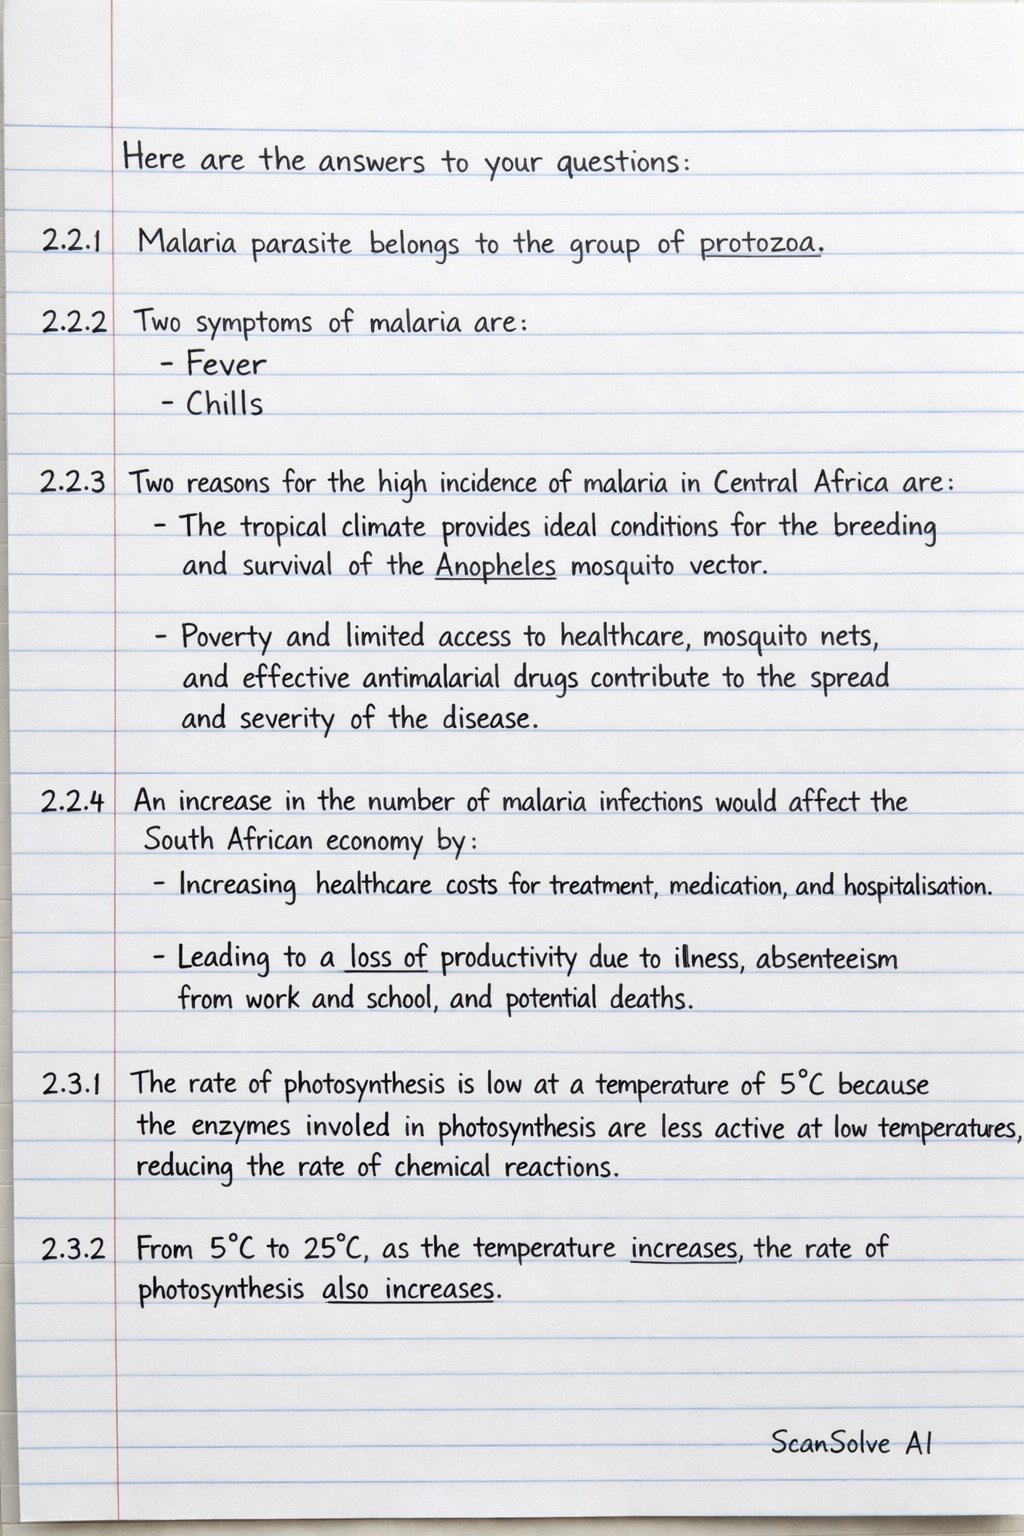 Here are the answers to your questions:
2.2.1 Malaria parasite belongs to the group of protozoa.
2.2.2 Two symptoms of malaria are:
- Fever
- Chills
2.2.3 Two reasons for the high incidence of malaria in Central Africa are:
- The tropical climate provides ideal conditions for the breeding
and survival of the Anopheles mosquito vector.
- Poverty and limited access to healthcare, mosquito nets,
and effective antimalarial drugs contribute to the spread
and severity of the disease.
2.2.4 An increase in the number of malaria infections would affect the
South African economy by:
- Increasing healthcare costs for treatment, medication, and hospitalisation.
- Leading to a loss of productivity due to illness, absenteeism
from work and school, and potential deaths.
2.3.1 The rate of photosynthesis is low at a temperature of 5°C because
the enzymes involed in photosynthesis are less active at low temperatures,
reducing the rate of chemical reactions.
2.3.2 From 5°C to 25°C, as the temperature increases, the rate of
photosynthesis also increases.
ScanSolve AI